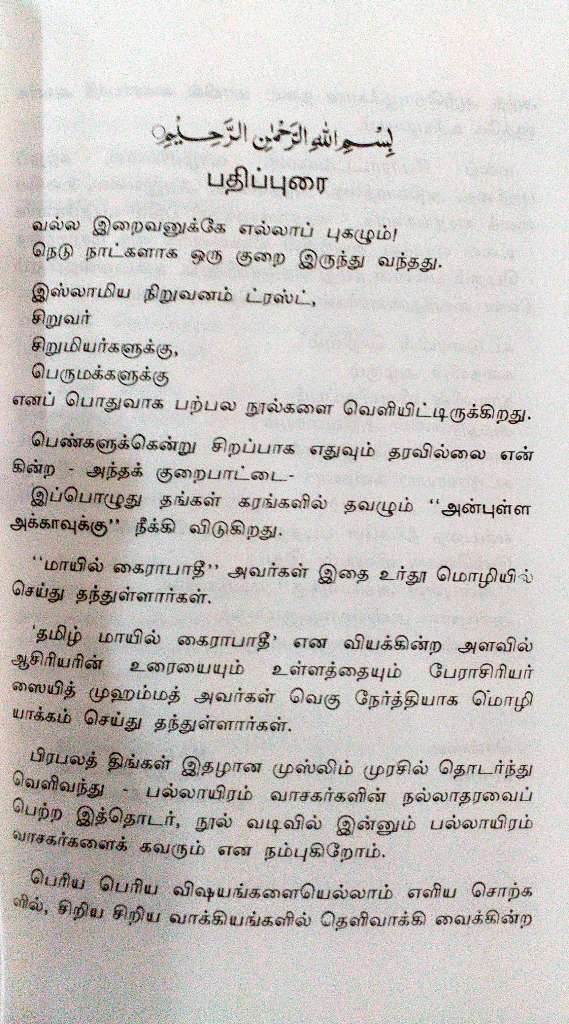 بِسْمِ اللهِ الرَّحْمٰنِ الرَّحِيْمِ
பதிப்புரை
வல்ல இறைவனுக்கே எல்லாப் புகழும்!
நெடு நாட்களாக ஒரு குறை இருந்து வந்தது.
இஸ்லாமிய நிறுவனம் ட்ரஸ்ட்,
சிறுவர்
சிறுமியர்களுக்கு,
பெருமக்களுக்கு
எனப் பொதுவாக பற்பல நூல்களை வெளியிட்டிருக்கிறது.
பெண்களுக்கென்று சிறப்பாக எதுவும் தரவில்லை என்
கின்ற - அந்தக் குறைபாட்டை-
இப்பொழுது தங்கள் கரங்களில் தவழும் “அன்புள்ள
அக்காவுக்கு” நீக்கி விடுகிறது.
“மாயில் கைராபாதீ” அவர்கள் இதை உர்தூ மொழியில்
செய்து தந்துள்ளார்கள்.
‘தமிழ் மாயில் கைராபாதீ’ என வியக்கின்ற அளவில்
ஆசிரியரின் உரையையும் உள்ளத்தையும் பேராசிரியர்
ஸையித் முஹம்மத் அவர்கள் வெகு நேர்த்தியாக மொழி
யாக்கம் செய்து தந்துள்ளார்கள்.
பிரபலத் திங்கள் இதழான முஸ்லிம் முரசில் தொடர்ந்து
வெளிவந்து - பல்லாயிரம் வாசகர்களின் நல்லாதரவைப்
பெற்ற இத்தொடர், நூல் வடிவில் இன்னும் பல்லாயிரம்
வாசகர்களைக் கவரும் என நம்புகிறோம்.
பெரிய பெரிய விஷயங்களையெல்லாம் எளிய சொற்க
ளில், சிறிய சிறிய வாக்கியங்களில் தெளிவாக்கி வைக்கின்ற